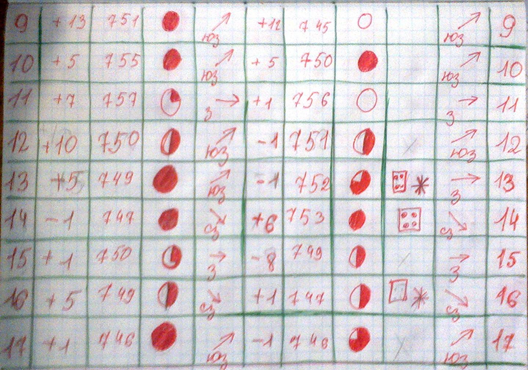 9 +13 751 ЮЗ +12 745 ЮЗ 9
10 +5 755 ЮЗ +5 750 ЮЗ 10
11 +7 757 З +1 756 З 11
12 +10 750 ЮЗ -1 751 ЮЗ 12
13 +5 749 ЮЗ -1 752 З 13
14 -1 747 СЗ +6 753 СЗ 14
15 +1 750 З -8 749 З 15
16 +5 749 СЗ +1 747 СЗ 16
17 +1 746 ЮЗ -1 748 ЮЗ 17